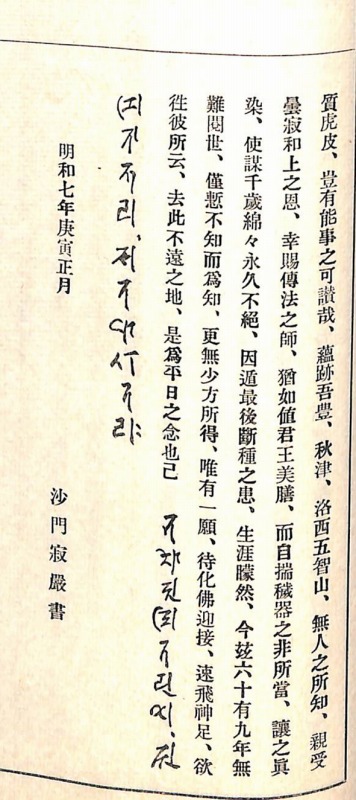 質虎皮、豈有能事之可讃哉、蘊跡吾豊、秋津、洛西五智山、無人之所知、親受
曇寂和上之恩、幸賜傳法之師、猶如値君王美膳、而自揣穢器之非所當、讓之眞
染、使謀千歲綿々永久不絕、因遁最後斷種之患、生涯朦然、今玆六十有九年無
難閱世、僅慙不知而爲知、更無少方所得、唯有一願、待化佛迎接、速飛神足、欲
徃彼所云、去此不遠之地、是爲平日之念也已
明和七年庚寅正月
沙門寂嚴書